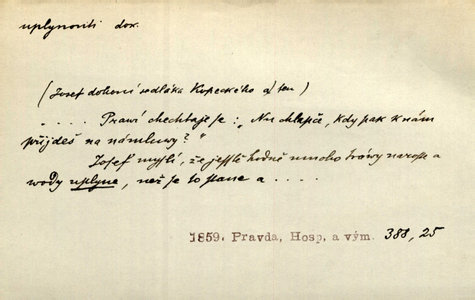 uplynouti dok.
(Josef dohoní sedláka Kopeckého a ten)
. . . . Praví chechtaje se: „Nu chlapče, kdy pak k nám
přijdeš na námluvy?"
Josef myslí, že ještě hodně mnoho trávy naroste a
vody uplyne, než se to stane a . . . .
1859. Pravda, Hosp. a vým. 388, 25